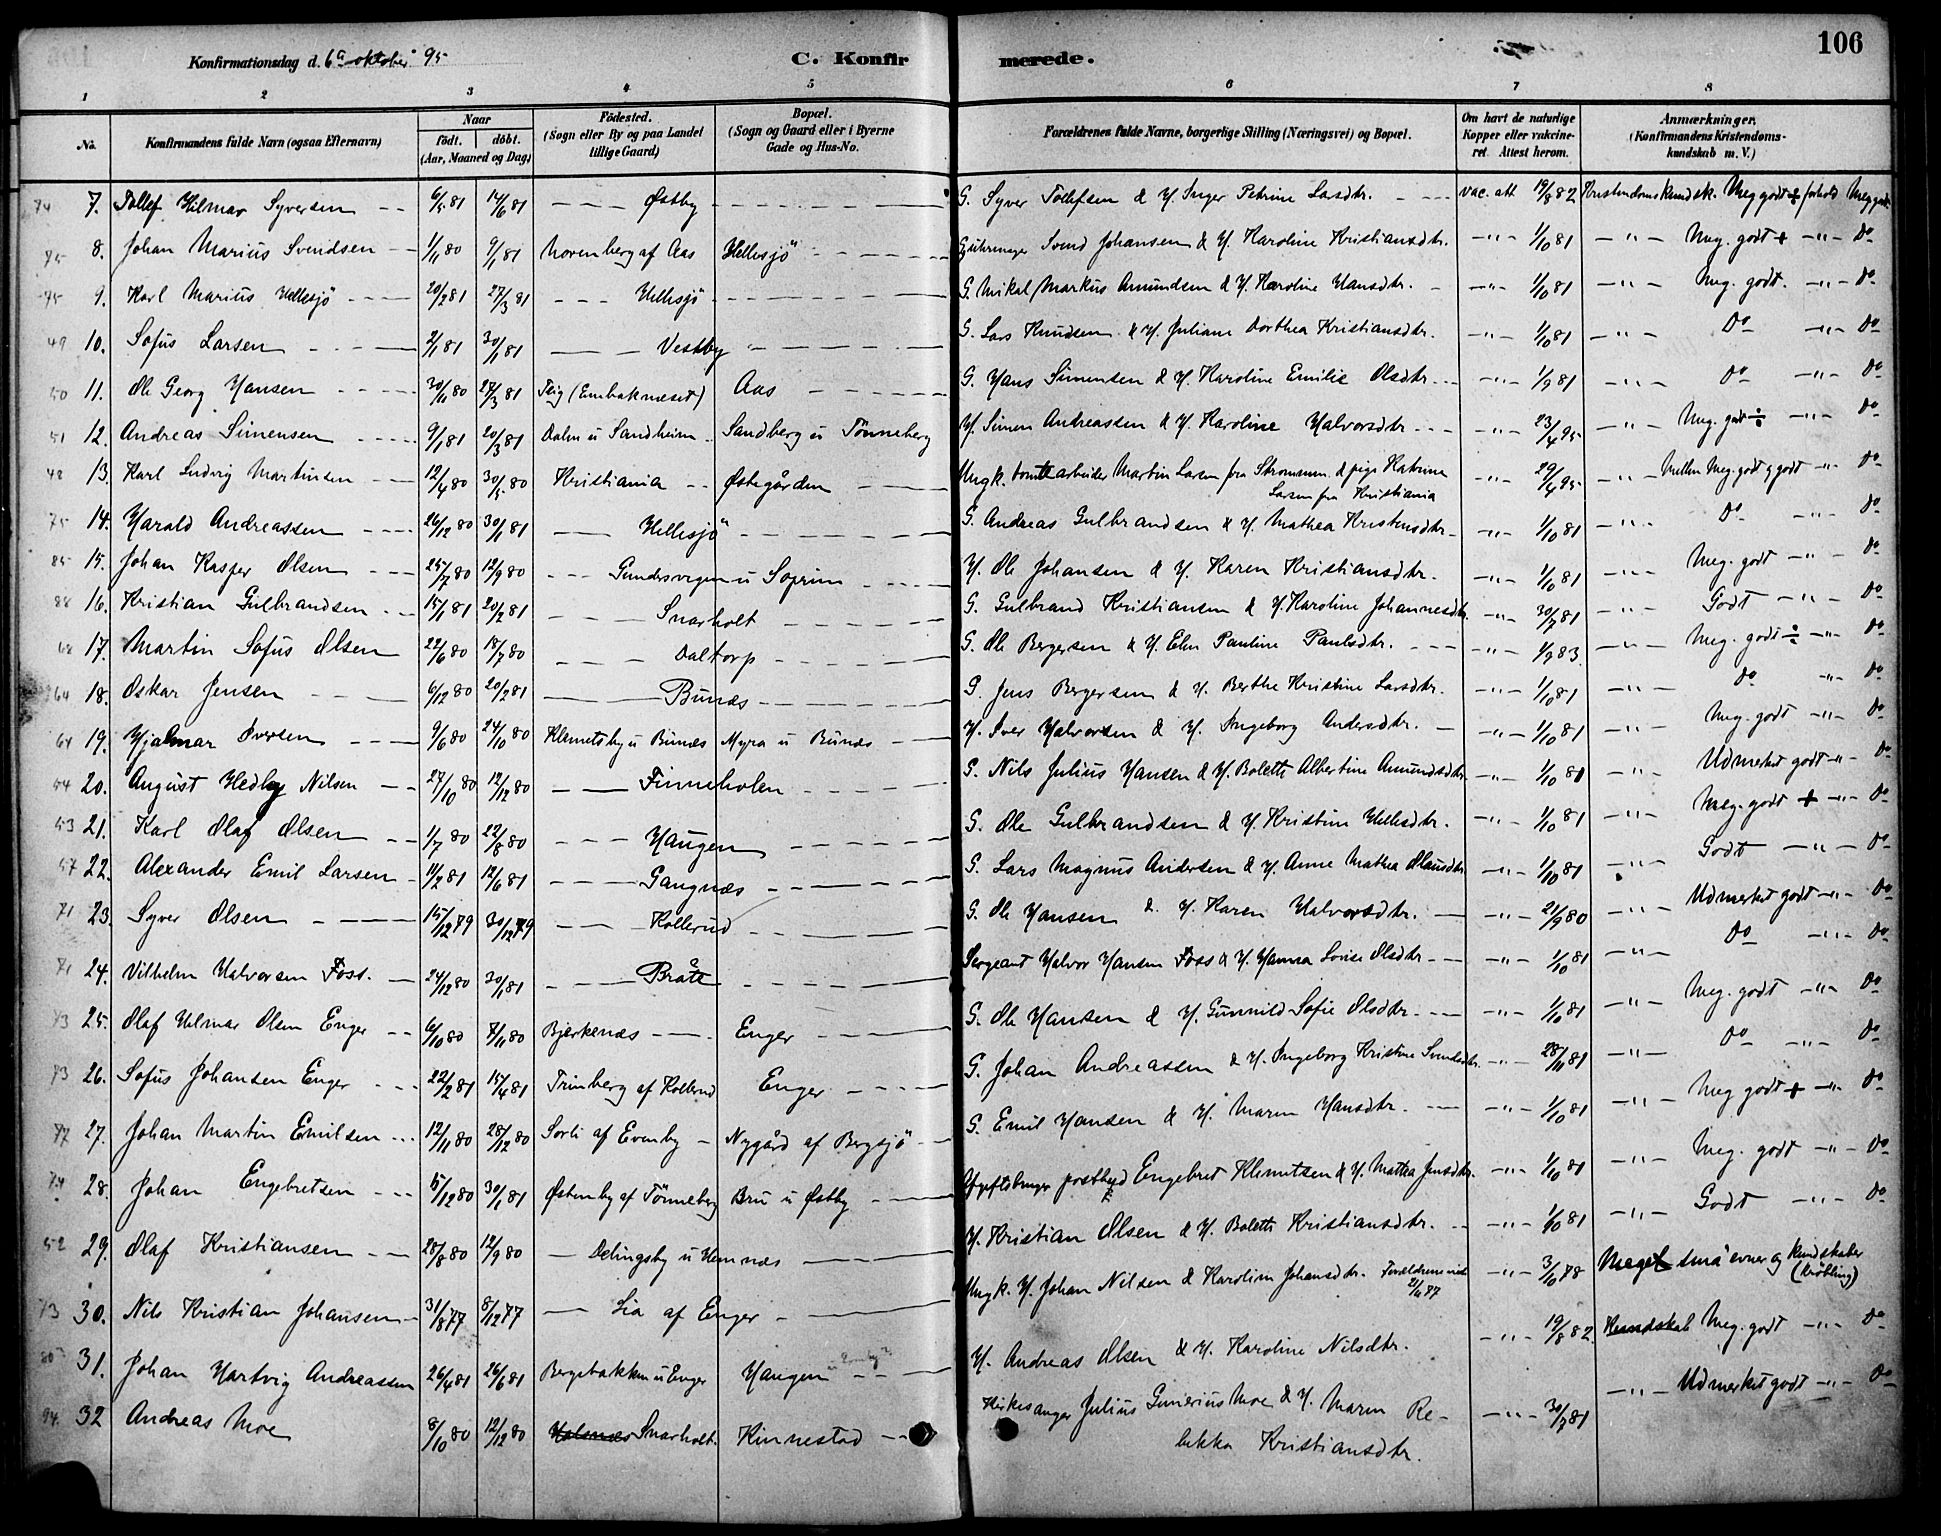 106
Konfirmationsdag d. 6a oktober 95
C. Konfirmerede.
1 2 3 4 5 6 7 8
No. Konfirmandens fulde Navn (ogsaa Efternavn) Naar födt. döbt. (Aar, Maaned og Dag) Födested. (Sogn eller By og paa Landet tillige Gaard) Bopæl. (Sogn og Gaard eller i Byerne Gade og Hus-No. Forældrenes fulde Navne, borgerlige Stilling (Næringsvei) og Bopæl. Om havt de naturlige Kopper eller vakcineret. Attest herom. Anmærkninger, (Konfirmandens Kristendomskundskab m. V.)
74 7. Tollef Hilmar Syversen 6/5 81 14/6 81 Østby G. Syver Tollefsen & H. Inger Petrine Larsdtr. vac. att 19/8 82 Kristendomskundsk. Meg godt ÷ forhold Meg godt
75 8. Johan Marius Svendsen 1/11 80 9/1 81 Morenberg af Aas Hellesjö Svend Johansen & H. Karoline Kristiansdtr. -"- 1/10 81 -"- Meg. godt + -"- Do
75 9. Karl Marius Hellesjö 20/2 81 27/3 81 Hellesjö G. Mikal Markus Amundsen & H. Karoline Hansdtr. -"- 1/10 81 -"- Meg. godt. -"- Do
49 10. Sofus Larsen 2/1 81 30/1 81 Vestby G. Lars Knudsen & H. Juliane Dorthea Kristiansdtr. -"- 1/10 81 -"- Do -"- Do
50 11. Ole Georg Hansen 30/11 80 27/3 81 Teig (Enebaknæset) Aas G. Hans Simensen & H. Karoline Emilie Olsdtr. -"- 1/9 81 -"- Do -"- Do
51 12. Andreas Simensen 9/1 81 20/3 81 Dalen u Sandheim Sandberg u Tönneberg H. Simen Andreassen & H. Karoline Halvorsdtr. -"- 23/4 95 -"- Meg. godt ÷ -"- Do
48 13. Karl Ludvig Martinsen 12/4 80 30/5 80 Kristiania Østegården Ungk. tomtearbeider Martin Larsen fra Strømmen & pige Katrine Larsen fra Kristiania -"- 29/4 95 -"- Mellem Meg. godt og godt -"- Do
75 14. Harald Andreassen 26/12 80 30/1 81 Hellesjö G. Andreas Gulbrandsen & H. Mathea Kristensdtr. -"- 1/10 81 -"- Do -"- Do
85 15. Johan Kasper Olsen 25/7 80 12/9 80 Gundersvegen u Soprim H. Ole Johansen & H. Karen Kristiansdtr. -"- 1/10 81 -"- Meg. godt -"- Do
88 16. Kristian Gulbrandsen 15/1 81 20/2 81 Snarholt G. Gulbrand Kristiansen & H. Karoline Johannesdtr. -"- 30/7 81 -"- Godt -"- Do
68 17. Martin Sofus Olsen 22/6 80 18/7 80 Daltorp G. Ole Bergersen & H. Elen Pauline Paulsdtr. -"- 1/9 83 -"- Meg. godt ÷ -"- Do
64 18. Oskar Jensen 6/12 80 20/2 81 Bunæs G. Jens Bergersen & H. Berthe Kristine Larsdtr. -"- 1/10 81 -"- Do -"- Do
64 19. Hjalmar Iversen 9/6 80 24/10 80 Klemetsby u Bunæs Myra u Bunæs H. Iver Halvorsen & H. Ingeborg Andersdtr. -"- 1/10 81 -"- Meg. godt -"- Do
54 20. August Hedley Nilsen 27/10 80 12/12 80 Finneholen G. Nils Julius Hansen & H. Bolette Albertine Amundsdtr. -"- 1/10 81 -"- Udmerket godt -"- Do
53 21. Karl Olaf Olsen 1/7 80 22/8 80 Haugen G. Ole Gulbrandsen & H. Kristine Nilsdtr. -"- 1/10 81 -"- Meg. godt + -"- Do
57 22. Alexander Emil Larsen 11/2 81 12/6 81 Gangnæs G. Lars Magnus Andersen & H. Anne Mathea Olausdtr. -"- 1/10 81 -"- Godt -"- Do
71 23. Syver Olsen 15/12 79 30/12 79 Kollerud G. Ole Hansen & H. Karen Halvorsdtr. -"- 21/9 80 -"- Udmerket godt -"- Do
71 24. Vilhelm Halvorsen Foss. 24/12 80 30/1 81 Bråte Sergeant Halvor Hansen Foss & H. Hanna Lovise Olsdtr. -"- 1/10 81 -"- Do -"- Do
73 25. Olaf Helmar Olsen Enger 6/10 80 7/11 80 Bjerkenæs Enger G. Ole Hansen & H. Gunnild Sofie Olsdtr. -"- 1/10 81 -"- Meg. godt -"- Do
73 26. Sofus Johansen Enger 22/2 81 15/4 81 Trinborg af Kollerud Enger G. Johan Andreassen & H. Ingeborg Kristine Svendsdtr. -"- 28/11 81 -"- Do -"- Do
77 27. Johan Martin Emilsen 12/11 80 28/12 80 Sorli af Evenby Nygård af Bergsjö G. Emil Hansen & H. Maren Hansdtr. -"- 1/10 81 -"- Meg godt + -"- Do
74 28. Johan Engebretsen 5/12 80 30/1 81 Østenby af Tönneberg Bru u Østby Afgiftsbruger postbud Engebret Klemetsen & H. Mathea Jensdtr. -"- 1/10 81 -"- Meg. godt -"- Do
52 29. Olaf Kristiansen 28/8 80 12/9 80 Delingsby u Hemnæs H. Kristian Olsen & H. Bolette Kristiansdtr. -"- 1/10 81 -"- Godt -"- Do
73 30. Nils Kristian Johansen 31/8 77 8/12 77 Lia af Enger Ungk. H. Johan Nilsen & Karoline Johansdtr. Forældrene viet 2/11 77 -"- 3/6 78 Meget små evner og kundskaber (krøbling)
80 31. Johan Hartvig Andreassen 26/4 81 26/6 81 Bergsbakken u Enger Haugen H. Andreas Olsen & H. Karoline Nilsdtr. -"- 19/8 82 Kundskab Meg. godt -"- Do
94 32 Andreas Moe 8/10 80 12/12 80 Snarholt. Kinnestad Kirkesanger Julius Gunerius Moe & H. Maren Rebekka Kristiansdtr. -"- 30/7 81 -"- Udmerket godt -"- Do